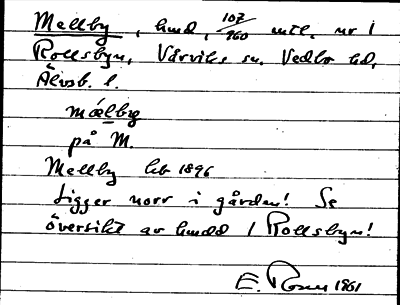 Mellby, hmd, 107/960 mtl. nr 1
Rollsbyn, Vårviks sn, Vedbo hd,
Älvsb. l.
mælby
på M.
Mellby hb 1896
Ligger norr i gården! Se
översikt av hmdd / Rollsbyn!
E. Rosen 1861